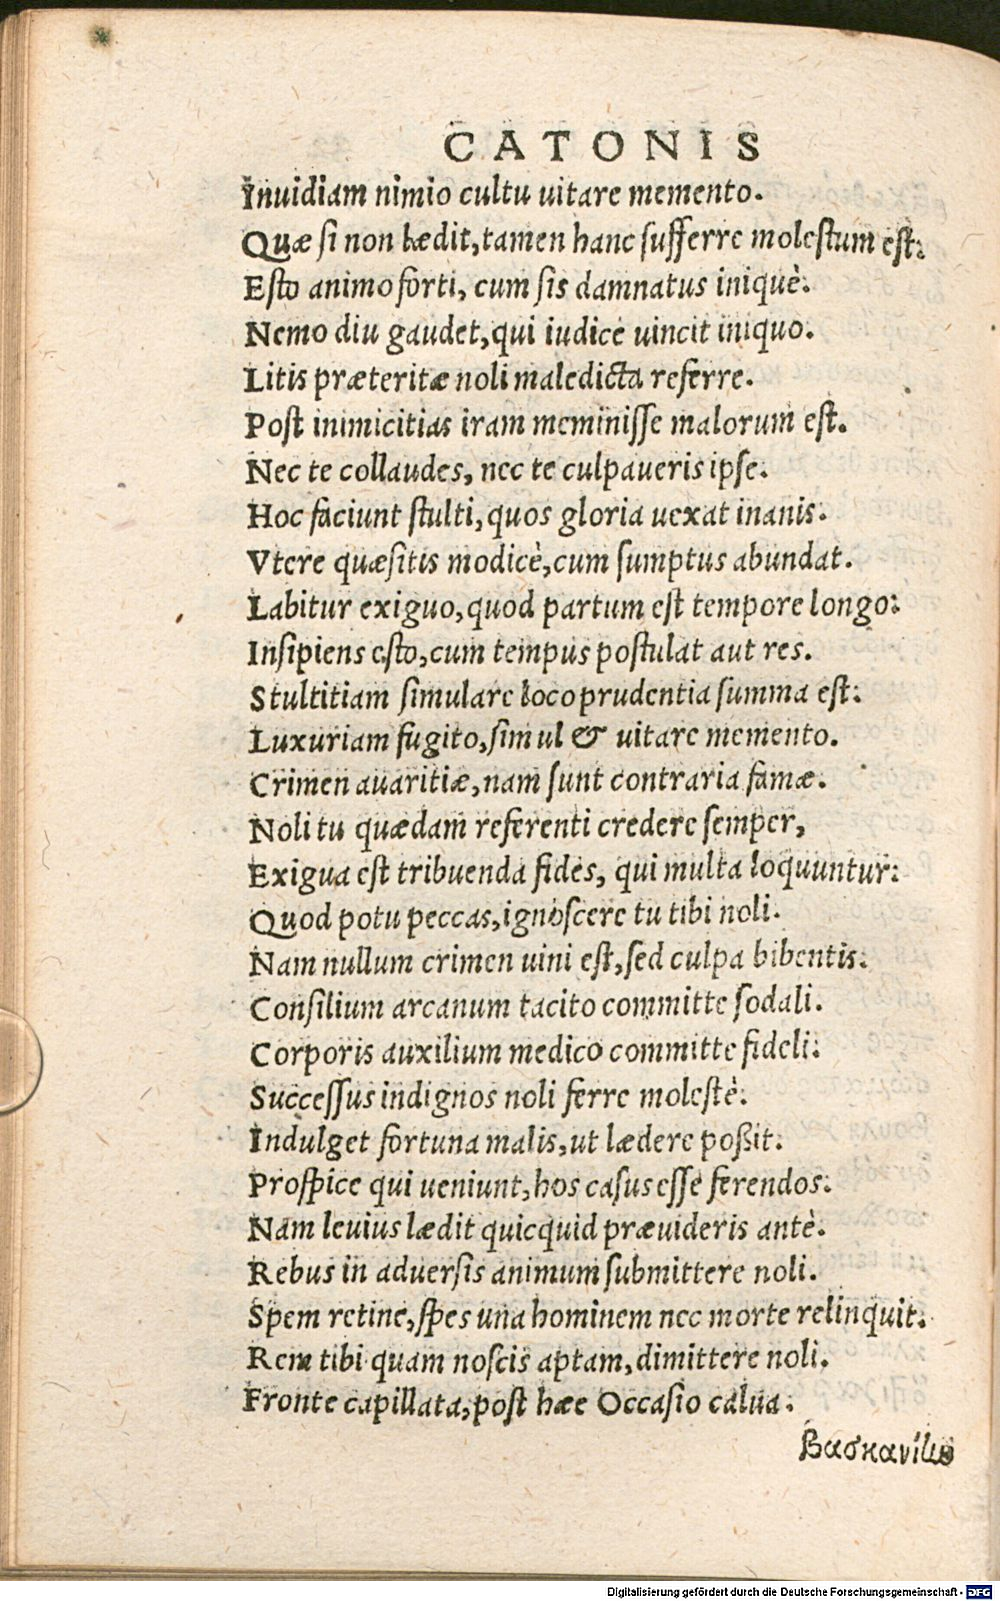 CATONIS
Inuidiam nimio cultu uitare memento.
Quæ si non lædit, tamen hanc sufferre molestum est:
Esto animo forti, cum sis damnatus iniquè.
Nemo diu gaudet, qui iudice uincit iniquo.
Litis præteritæ noli maledicta referre.
Post inimicitias iram meminisse malorum est.
Nec te collaudes, nec te culpaueris ipse.
Hoc faciunt stulti, quos gloria uexat inanis.
Vtere quæsitis modicè, cum sumptus abundat.
Labitur exiguo, quod partum est tempore longo:
Insipiens esto, cum tempus postulat aut res.
Stultitiam simulare loco prudentia summa est:
Luxuriam fugito, simul & uitare memento.
Crimen auaritiæ, nam sunt contraria famæ.
Noli tu quædam referenti credere semper,
Exigua est tribuenda fides, qui multa loquuntur:
Quod potu peccas, ignoscere tu tibi noli.
Nam nullum crimen uini est, sed culpa bibentis.
Consilium arcanum tacito committe sodali.
Corporis auxilium medico committe fideli:
Successus indignos noli ferre molestè.
Indulget fortuna malis, ut lædere poßit.
Prospice qui ueniunt, hos casus esse ferendos:
Nam leuius lædit quicquid præuideris antè.
Rebus in aduersis animum submittere noli.
Spem retine, spes una hominem nec morte relinquit.
Rem tibi quam noscis aptam, dimittere noli.
Fronte capillata, post hæc Occasio calua.
Digitalisierung gefördert durch die Deutsche Forschungsgemeinschaft - DFG